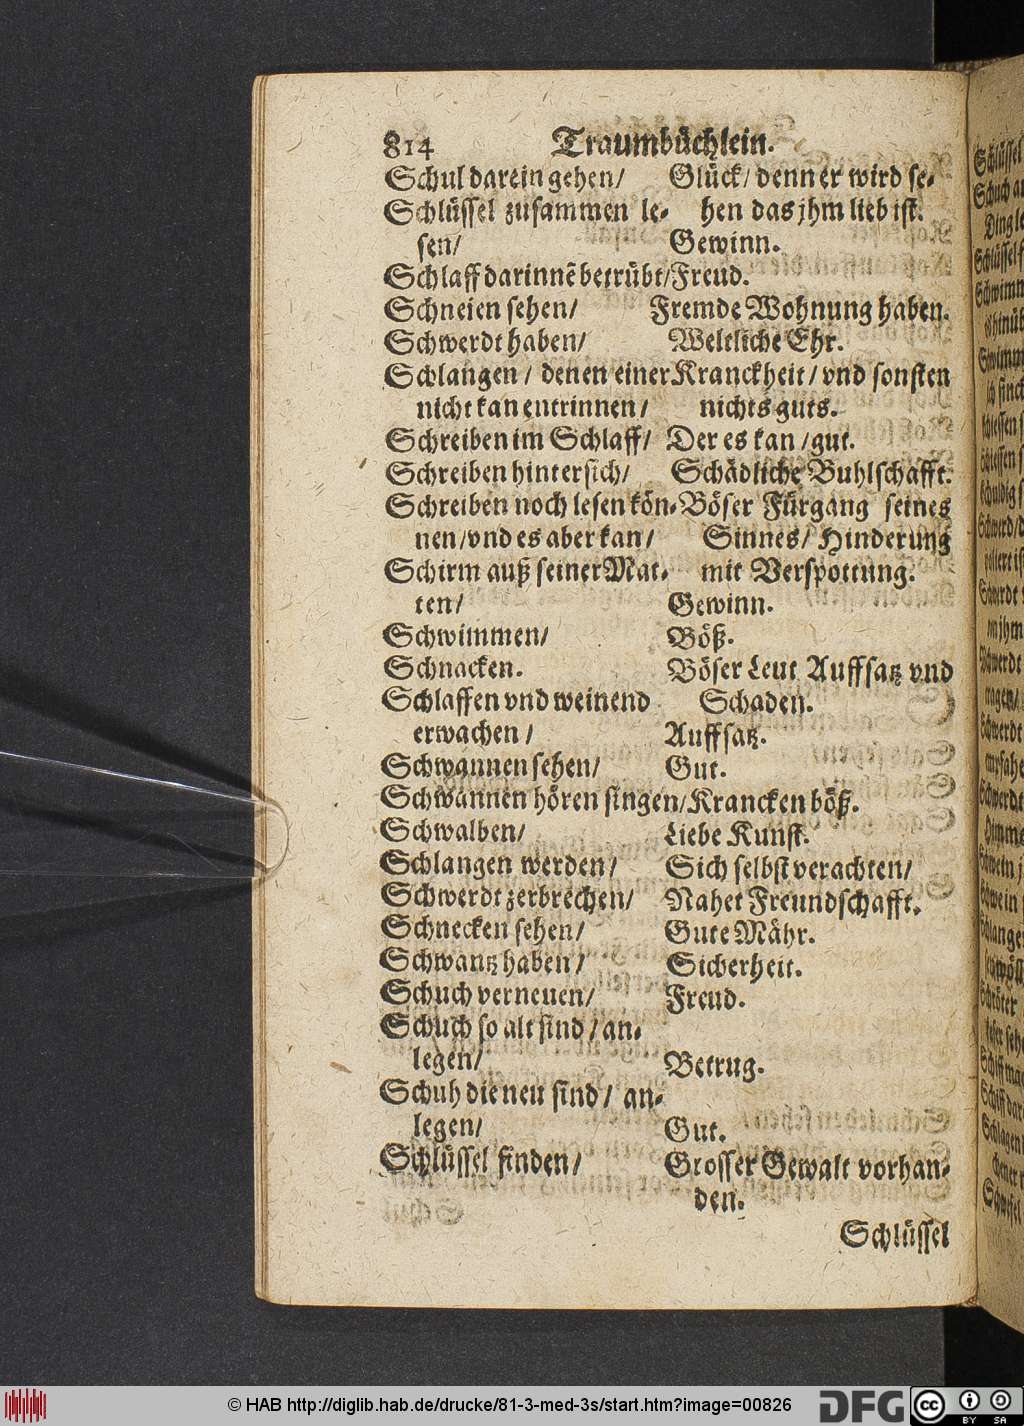 814 Traumbüchlein.
Schul darein gehen/ Glück/ denn er wird se-
Schlüssel zusammen le- hen das jhm lieb ist.
sen/ Gewinn.
Schlaff darinnē betrübt/ Freud.
Schneien sehen/ Fremde Wohnung haben.
Schwerdt haben/ Weltliche Ehr.
Schlangen/ denen einer Kranckheit/ vnd sonsten
nicht kan entrinnen/ nichts guts.
Schreiben im Schlaff/ Der es kan/ gut.
Schreiben hintersich/ Schädliche Buhlschafft.
Schreiben noch lesen kön- Böser Fürgang seines
nen/ vnd es aber kan/ Sinnes/ Hinderung
Schirm auß seiner Mat- mit Verspottung.
ten/ Gewinn.
Schwimmen/ Böß.
Schnacken. Böser Leut Auffsatz vnd
Schlaffen vnd weinend Schaden.
erwachen/ Auffsatz.
Schwannen sehen/ Gut.
Schwannen hören singen/ Krancken böß.
Schwalben/ Liebe Kunst.
Schlangen werden/ Sich selbst verachten/
Schwerdt zerbrechen/ Nahet Freundschafft.
Schnecken sehen/ Gute Mähr.
Schwantz haben/ Sicherheit.
Schuch verneuen/ Freud.
Schuch so alt sind/ an-
legen/ Betrug.
Schuh die neu sind/ an-
legen/ Gut.
Schlüssel finden/ Grosser Gewalt vorhan-
den.
Schlüssel
© HAB http://diglib.hab.de/drucke/81-3-med-3s/start.htm?image=00826
DFG
CC BY SA